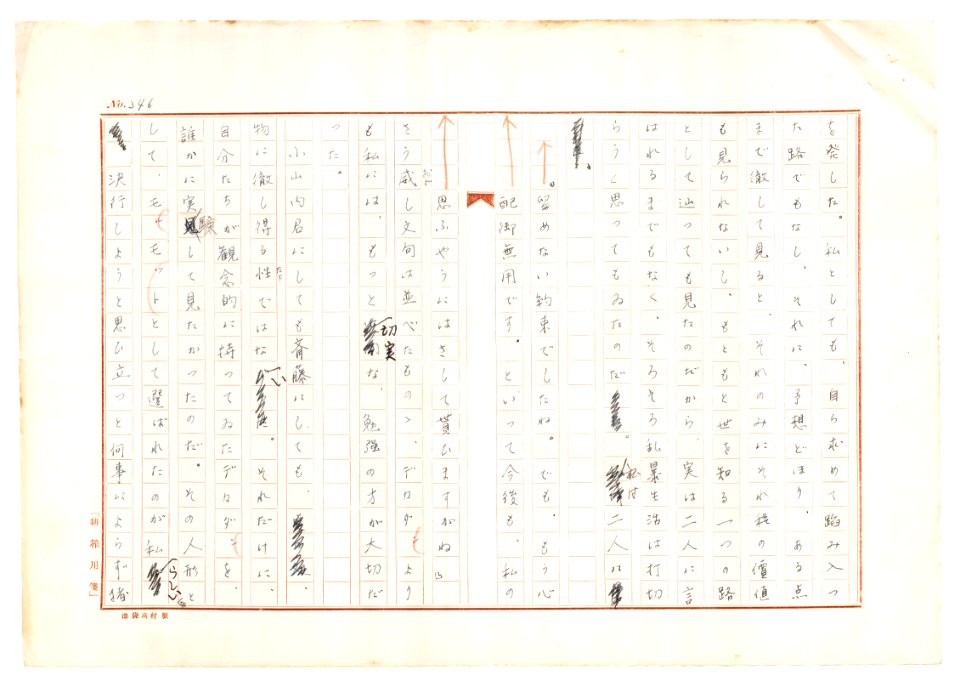 No. 246
を発した。私としても、自ら求めて踏み入つ
た路でもなし、それに、予想どほり、ある点
まで徹して見ると、それのみにそれ程の價値
も見られないし、もともと世を知る一つの路
として辿つても見たのだから、実は二人に言
はれるまでもなく、そろそろ乱暴生活は打切
らうと思つてもゐたのだ。私は二人に
。留めない約束でしたね。でも、もう心
配御無用です。といつて今後も、私の
思ふやうにはさして貰ひますがね」
さう威し文句は並べたものゝ、デカダンより
も私には、もつと切実な、勉強の方が大切だ
つた。
小山内君にしても斉藤にしても、
物に徹し得る性ではない。それだけに、
自分たちが観念的に持つてゐたデカダンを、
誰かに実験して見たかつたのだ。その人形と
して、モットとして選ばれたのが私らしい。
決行しようと思ひ立つと何事によらず猪
「新稿用箋」
池袋高村製